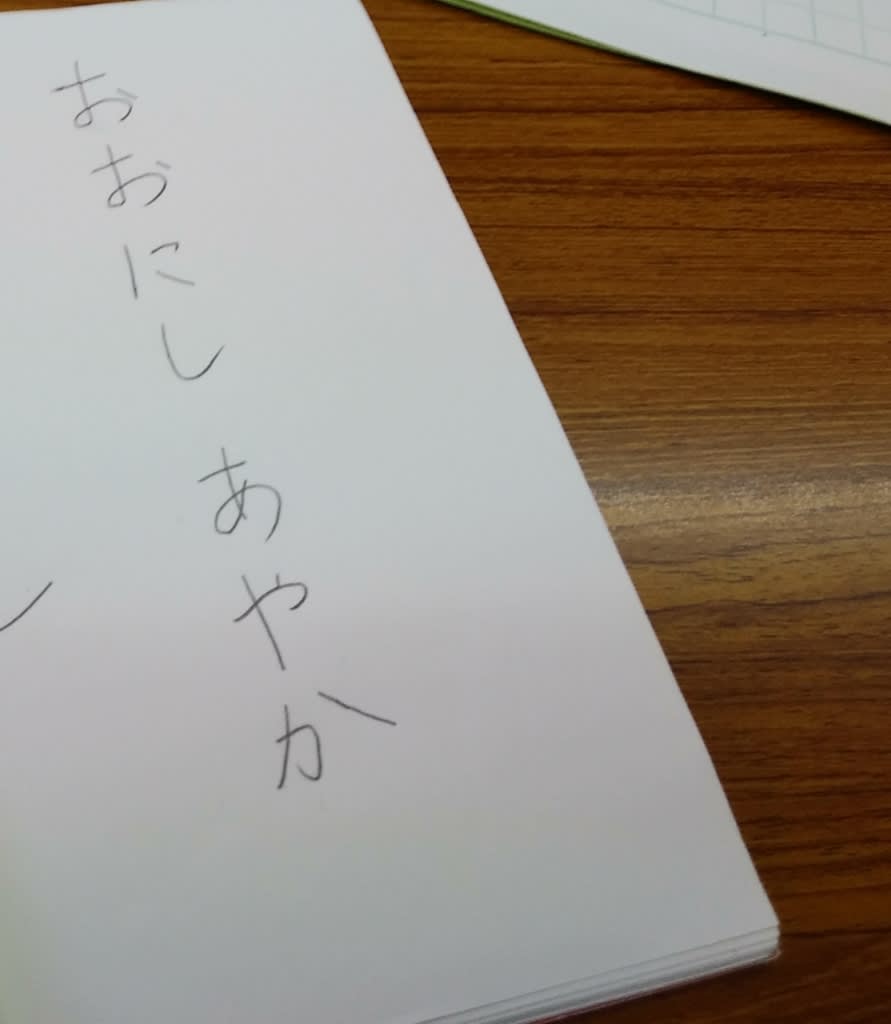 おおにし あやか